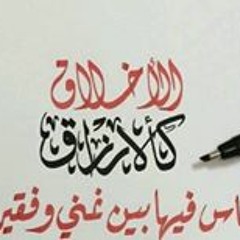 الأخلاق
كالأرزاق
ناس فيها بين غني وفقير